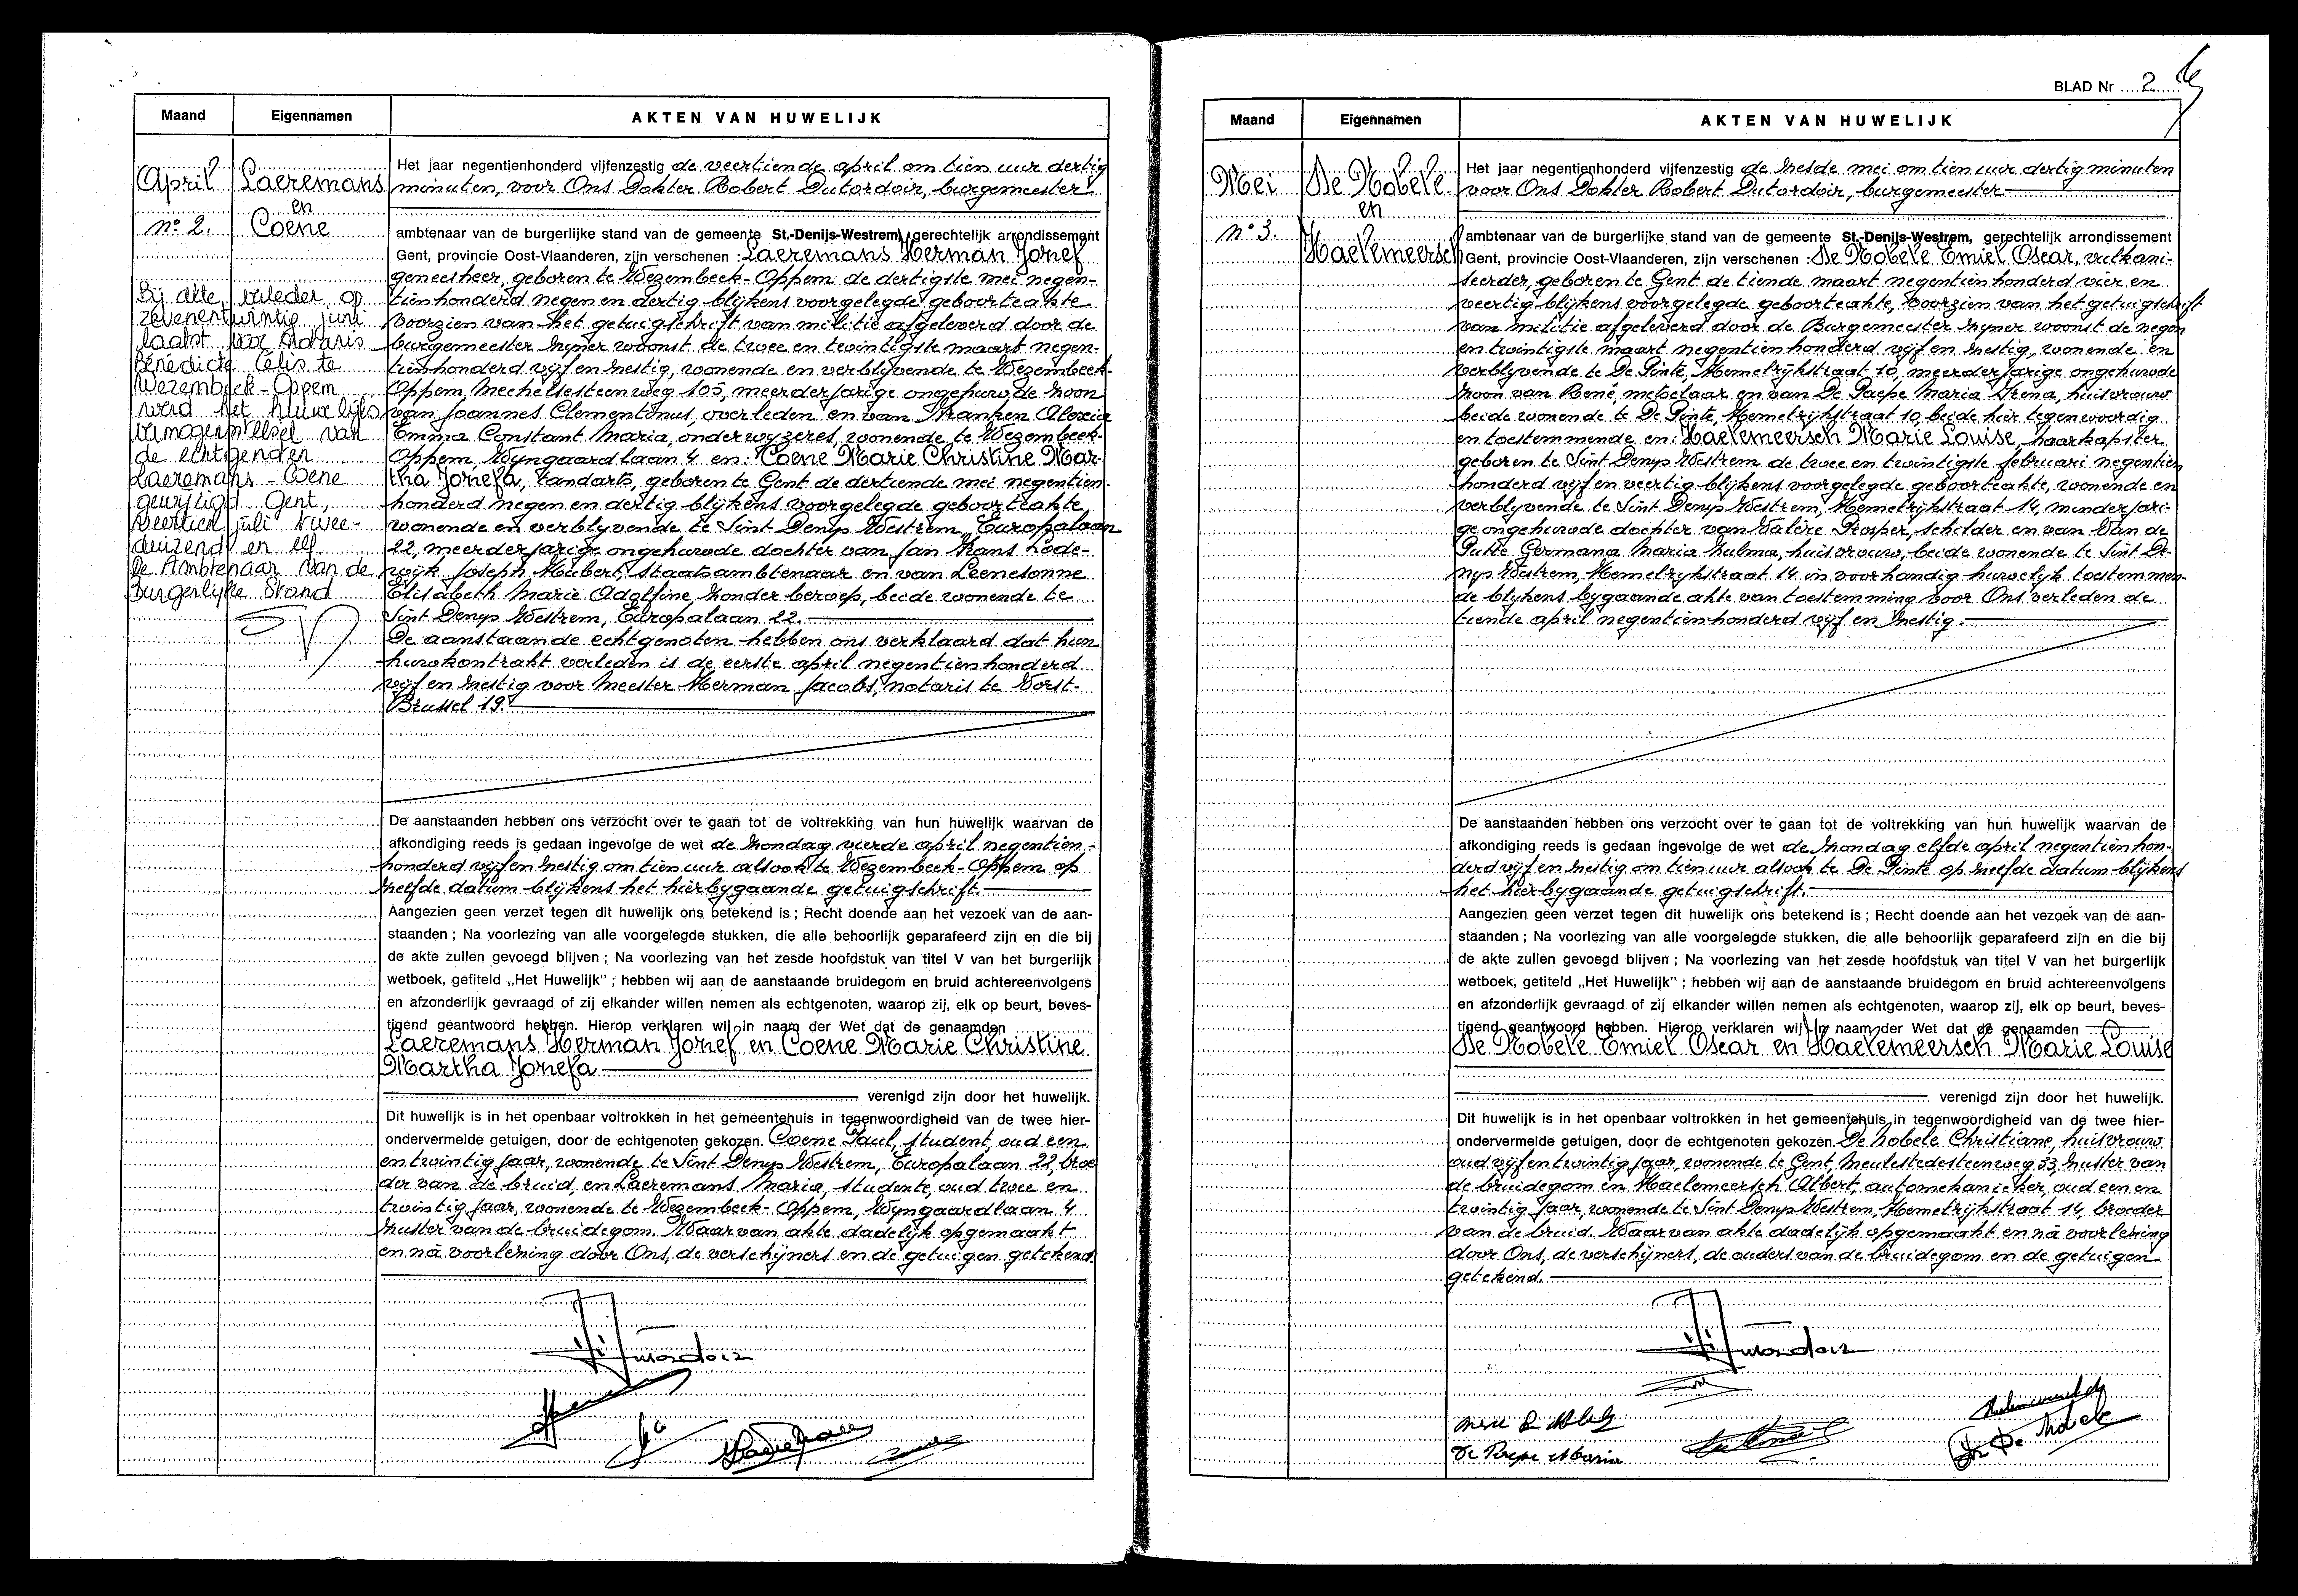 Maand Eigennamen AKTEN VAN HUWELIJK
April
n° 2.
Laeremans
en
Coene
Bij akte verleden op
zevenentwintig juni
laatst voor Notaris
Bénédicte Celis te
Wezembeek-Oppem
werd het huwelijks
vermogenstelsel van
de echtgenoten
Laeremans - Coene
gewijzigd Gent,
veertien juli twee-
duizend en elf
De Ambtenaar van de
Burgerlijke Stand
Het jaar negentienhonderd vijfenzestig de veertiende april om tien uur dertig
minuten, voor Ons Dokter Robert Dutordoir, burgemeester
ambtenaar van de burgerlijke stand van de gemeente St.-Denijs-Westrem, gerechtelijk arrondissement
Gent, provincie Oost-Vlaanderen, zijn verschenen : Laeremans Herman Jozef
geneesheer, geboren te Wezembeek-Oppem de dertigste mei negen-
tienhonderd negen en dertig blijkens voorgelegde geboorteakte
voorzien van het getuigschrift van militie afgeleverd door de
burgemeester zijner woonst de twee en twintigste maart negen-
tienhonderd vijf en zestig, wonende en verblijvende te Wezembeek-
Oppem, Mechelsesteenweg 105, meerderjarige ongehuwde zoon
van Joannes Clementinus, overleden en van Vranken Alexia
Emma Constant Maria, onderwijzeres, wonende te Wezembeek-
Oppem, Wijngaardlaan 4 en: Coene Marie Christine Mar-
tha Jozefa, tandarts, geboren te Gent de dertiende mei negentien-
honderd negen en dertig blijkens voorgelegde geboorteakte
wonende en verblijvende te Sint Denijs Westrem, Europalaan
22, meerderjarige ongehuwde dochter van Jan Frans Lode-
wijk Joseph Hubert, staatsambtenaar en van Leenesonne
Elisabeth Marie Adolfine, zonder beroep, beide wonende te
Sint Denijs Westrem, Europalaan 22.
De aanstaande echtgenoten hebben ons verklaard dat hun
huwkontrakt verleden is de eerste april negentienhonderd
vijf en zestig voor Meester Herman Jacobs, notaris te Vorst-
Brussel 19.
De aanstaanden hebben ons verzocht over te gaan tot de voltrekking van hun huwelijk waarvan de
afkondiging reeds is gedaan ingevolge de wet de zondag vierde april negentien-
honderd vijf en zestig om tien uur alsook te Wezembeek-Oppem op
zelfde datum blijkens het hierbijgaande getuigschrift.
Aangezien geen verzet tegen dit huwelijk ons betekend is ; Recht doende aan het vezoek van de aan-
staanden ; Na voorlezing van alle voorgelegde stukken, die alle behoorlijk geparafeerd zijn en die bij
de akte zullen gevoegd blijven ; Na voorlezing van het zesde hoofdstuk van titel V van het burgerlijk
wetboek, getiteld „Het Huwelijk" ; hebben wij aan de aanstaande bruidegom en bruid achtereenvolgens
en afzonderlijk gevraagd of zij elkander willen nemen als echtgenoten, waarop zij, elk op beurt, beves-
tigend geantwoord hebben. Hierop verklaren wij in naam der Wet dat de genaamden
Laeremans Herman Jozef en Coene Marie Christine
Martha Jozefa
verenigd zijn door het huwelijk.
Dit huwelijk is in het openbaar voltrokken in het gemeentehuis in tegenwoordigheid van de twee hier-
ondervermelde getuigen, door de echtgenoten gekozen. Coene Paul, student, oud een
en twintig jaar, wonende te Sint Denijs Westrem, Europalaan 22, broe
der van de bruid, en Laeremans Maria, studente, oud twee en
twintig jaar, wonende te Wezembeek-Oppem, Wijngaardlaan 4
zuster van de bruidegom. Waarvan akte dadelijk opgemaakt
en nà voorlezing door Ons, de verschijners en de getuigen getekend.
BLAD Nr 2
Maand Eigennamen AKTEN VAN HUWELIJK
Mei
n° 3.
De Nobele
en
Haelemeersch
Het jaar negentienhonderd vijfenzestig de zesde mei om tien uur dertig minuten
voor Ons Dokter Robert Dutordoir, burgemeester
ambtenaar van de burgerlijke stand van de gemeente St.-Denijs-Westrem, gerechtelijk arrondissement
Gent, provincie Oost-Vlaanderen, zijn verschenen : De Nobele Emiel Oscar, vulkani-
seerder, geboren te Gent de tiende maart negentienhonderd vier en
veertig blijkens voorgelegde geboorteakte, voorzien van het getuigschrift
van militie afgeleverd door de Burgemeester zijner woonst de negen
en twintigste maart negentienhonderd vijf en zestig, wonende en
verblijvende te De Pinte, Hemelrijkstraat 10, meerderjarige ongehuwde
zoon van René, metselaar en van De Paepe Maria Irena, huisvrouw
beide wonende te De Pinte, Hemelrijkstraat 10 beide hier tegenwoordig
en toestemmende en: Haelemeersch Marie Louise, haarkapster
geboren te Sint Denijs Westrem de twee en twintigste februari negentien
honderd vijf en veertig blijkens voorgelegde geboorteakte, wonende en
verblijvende te Sint Denijs Westrem, Hemelrijkstraat 14, minderjari-
ge ongehuwde dochter van Valère Prosper, schilder en van Van de
Putte Germana Maria Zulma, huisvrouw, beide wonende te Sint De-
nijs Westrem, Hemelrijkstraat 14 in voorhandig huwelijk toestemmen-
de blijkens bijgaande akte van toestemming voor Ons verleden de
tiende april negentienhonderd vijf en zestig.
De aanstaanden hebben ons verzocht over te gaan tot de voltrekking van hun huwelijk waarvan de
afkondiging reeds is gedaan ingevolge de wet de zondag elfde april negentienhon-
derd vijf en zestig om tien uur alsook te De Pinte op zelfde datum blijkens
het hierbijgaande getuigschrift.
Aangezien geen verzet tegen dit huwelijk ons betekend is ; Recht doende aan het vezoek van de aan-
staanden ; Na voorlezing van alle voorgelegde stukken, die alle behoorlijk geparafeerd zijn en die bij
de akte zullen gevoegd blijven ; Na voorlezing van het zesde hoofdstuk van titel V van het burgerlijk
wetboek, getiteld „Het Huwelijk" ; hebben wij aan de aanstaande bruidegom en bruid achtereenvolgens
en afzonderlijk gevraagd of zij elkander willen nemen als echtgenoten, waarop zij, elk op beurt, beves-
tigend geantwoord hebben. Hierop verklaren wij in naam der Wet dat de genaamden
De Nobele Emiel Oscar en Haelemeersch Marie Louise
verenigd zijn door het huwelijk.
Dit huwelijk is in het openbaar voltrokken in het gemeentehuis in tegenwoordigheid van de twee hier-
ondervermelde getuigen, door de echtgenoten gekozen. De Nobele Christiane, huisvrouw
oud vijf en twintig jaar, wonende te Gent, Meulestedesteenweg 33, zuster van
de bruidegom en Haelemeersch Albert, automekanieker, oud een en
twintig jaar, wonende te Sint Denijs Westrem, Hemelrijkstraat 14, broeder
van de bruid. Waarvan akte dadelijk opgemaakt en nà voorlezing
door Ons, de verschijners, de ouders van de bruidegom en de getuigen
getekend.
De Paepe Maria
De Nobele